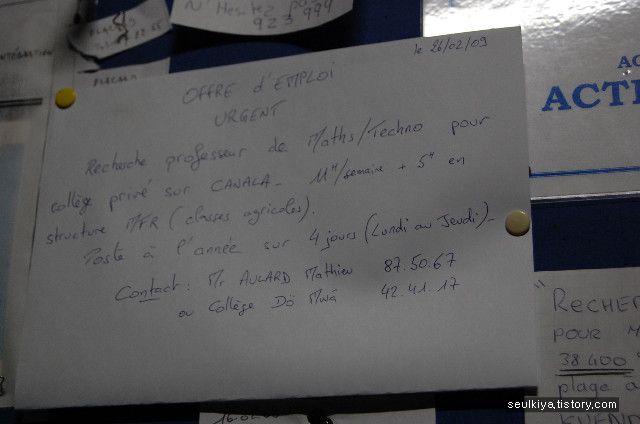 N'Hesitez pas
923 999
le 26/02/09
OFFRE d'EMPLOI
URGENT
Recherche professeur de Maths/Techno pour
collège privé sur CANALA. 11H/semaine + 5H en
structure MFR (classes agricoles).
Poste à l'année sur 4 jours (Lundi au Jeudi).
Contact : Mr AUCARD Mathieu 87.50.67
ou Collège Dö Mwà 42.41.17
AC
ACTI
"RECHER
POUR M
38 400
plage à
seulkiya.tistory.com